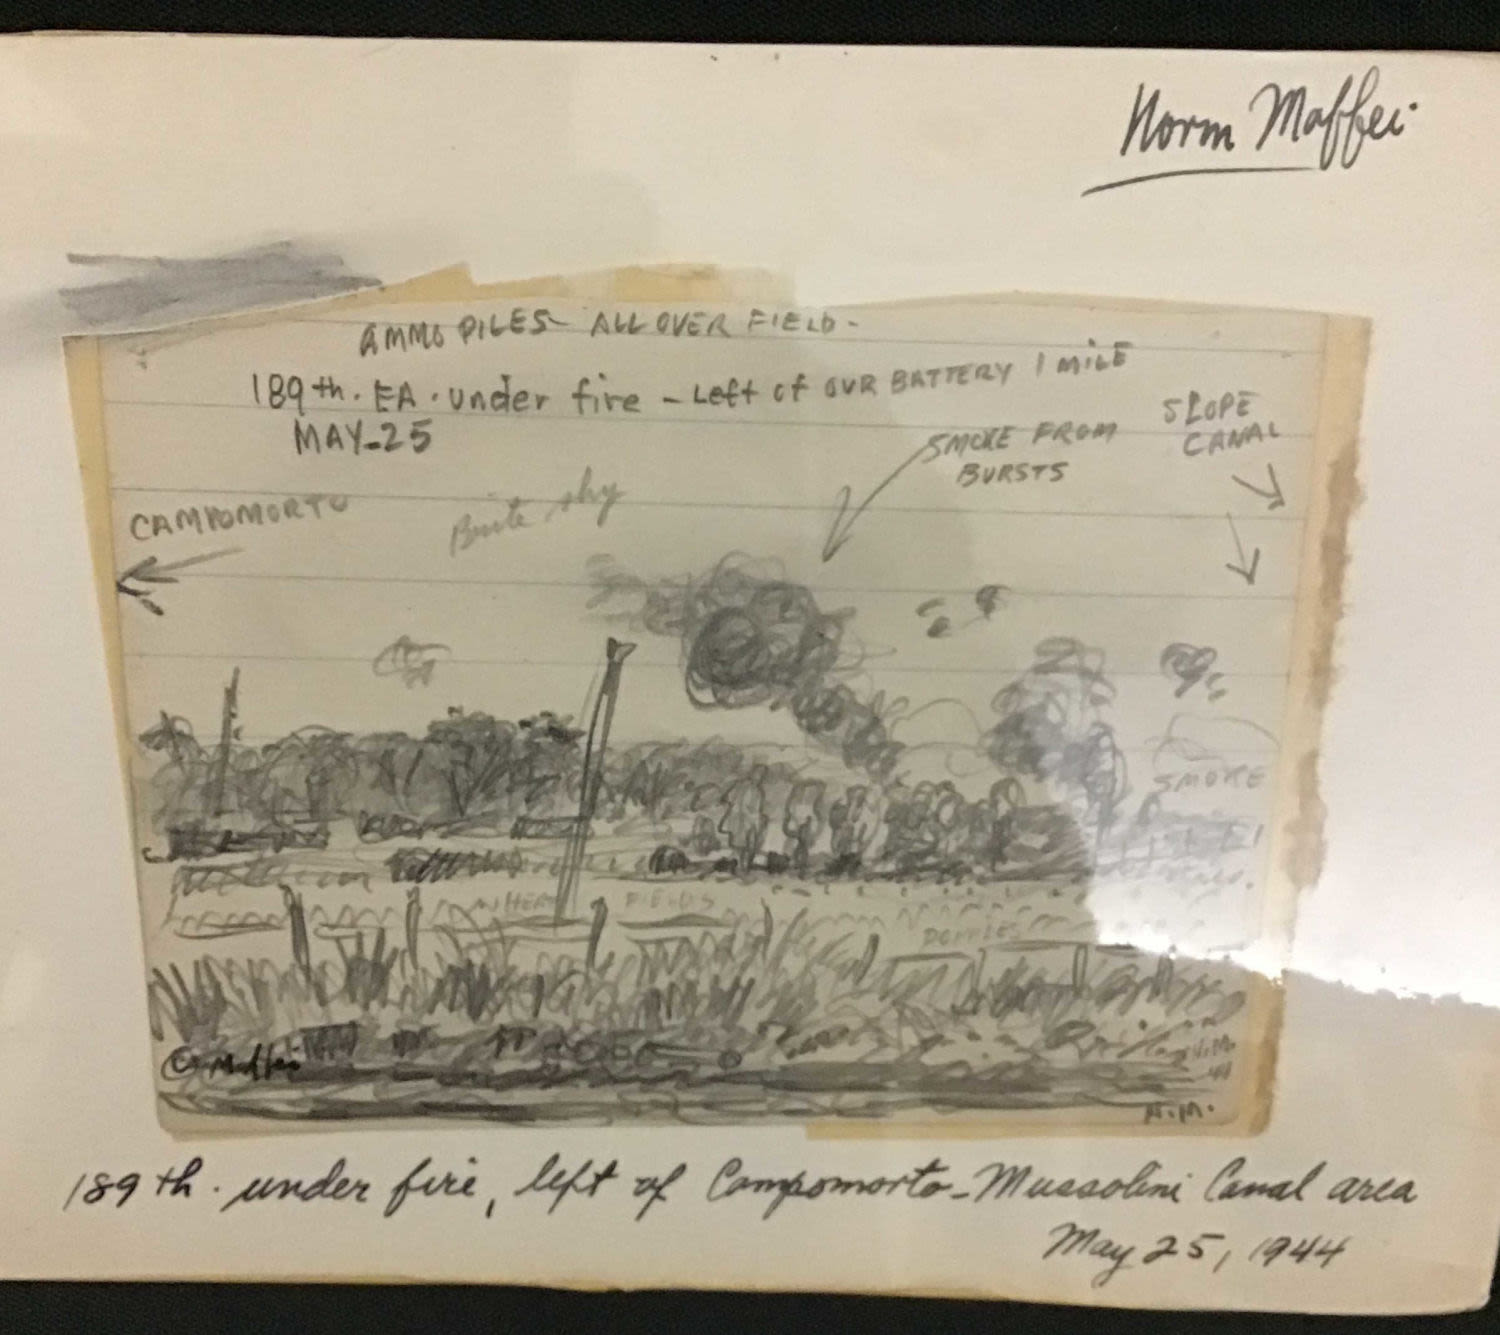 Norm Maffei
AMMO PILES - ALL OVER FIELD -
189th. FA. under fire - Left of OUR BATTERY 1 MILE
MAY-25
SLOPE
CANAL
SMOKE FROM
BURSTS
CAMPOMORTO
sky
SMOKE
WHEAT FIELDS
POPPIES
© Maffei
N.M.
189th. under fire, left of Campomorto - Mussolini Canal area
May 25, 1944